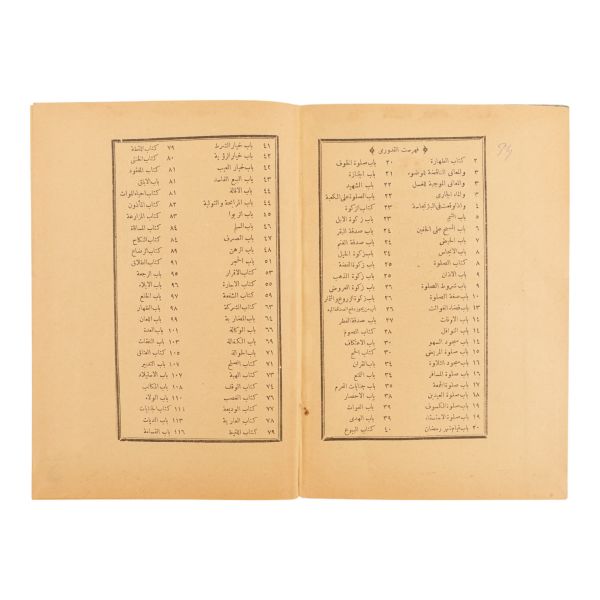 فهرست القدورى
٢ كتاب الطهارة
٣ والمعانى الناقضة للوضوء
٣ والمعانى الموجبة للغسل
٣ والماء الجارى
٤ واذا وقعت فى البئر نجاسة
٥ باب التيمم
٦ باب المسح على الخفين
٧ باب الحيض
٨ باب الانجاس
٨ كتاب الصلوة
٩ باب الاذان
٩ باب شروط الصلوة
١٠ باب صفة الصلوة
١٣ باب قضاء الفوائت
١٤ باب الاوقات
١٤ باب النوافل
١٤ باب سجود السهو
١٥ باب صلوة المريض
١٦ باب سجود التلاوة
١٦ باب صلوة المسافر
١٧ باب صلوة الجمعة
١٨ باب صلوة العيدين
١٩ باب صلوة الكسوف
١٩ باب صلوة الاستسقاء
٢٠ باب قيام شهر رمضان
٢٠ باب صلوة الخوف
٢١ باب الجنازة
٢٢ باب الشهيد
٢٢ باب الصلوة فى الكعبة
٢٢ كتاب الزكوة
٢٣ باب زكوة الابل
٢٣ باب صدقة البقر
٢٤ باب صدقة الغنم
٢٤ باب زكوة الخيل
٢٥ باب زكوة الفضة
٢٥ باب زكوة الذهب
٢٥ باب زكوة العروض
٢٦ باب زكوة الزروع والثمار
٢٦
٢٧ باب صدقة الفطر
٢٨ كتاب الصوم
٣٠ باب الاعتكاف
٣٠ كتاب الحج
٣٤ باب القران
٣٤ باب التمتع
٣٥ باب جنايات المحرم
٣٨ باب الاحصار
٣٩ باب الفوات
٣٩ باب الهدى
٤٠ كتاب البيوع
٤١ باب خيار الشرط
٤٢ باب خيار الرؤية
٤٢ باب خيار العيب
٤٣ باب البيع الفاسد
٤٤ باب الاقالة
٤٤ باب المرابحة والتولية
٤٥ باب الربوا
٤٦ باب السلم
٤٧ باب الصرف
٤٨ باب الرهن
٥١ باب الحجر
٥٣ كتاب الاقرار
٥٥ كتاب الاجارة
٥٩ كتاب الشفعة
٦٣ كتاب الشركة
٦٤ باب المضاربة
٦٦ باب الوكالة
٦٩ باب الكفالة
٧١ باب الحوالة
٧١ كتاب الصلح
٧٣ كتاب الهبة
٧٤ كتاب الوقف
٧٦ كتاب الغصب
٧٧ كتاب الوديعة
٧٨ كتاب العارية
٧٩ كتاب اللقيط
٧٩ كتاب اللقطة
٨٠ كتاب الخنثى
٨١ كتاب المفقود
٨١ باب الاباق
٨١ كتاب احياء الموات
٨٢ كتاب المأذون
٨٣ كتاب المزارعة
٨٤ كتاب المساقاة
٨٤ كتاب النكاح
٨٩ كتاب الرضاع
٩١ كتاب الطلاق
٩٥ باب الرجعة
٩٦ باب الايلاء
٩٧ باب الخلع
٩٨ باب الظهار
٩٩ باب اللعان
١٠١ باب العدة
١٠٣ باب النفقات
١٠٥ كتاب العتاق
١٠٧ باب التدبير
١٠٧ باب الاستيلاد
١٠٨ باب المكاتب
١١٠ باب الولاء
١١١ كتاب الجنايات
١١٣ باب الديات
١١٦ باب القسامة